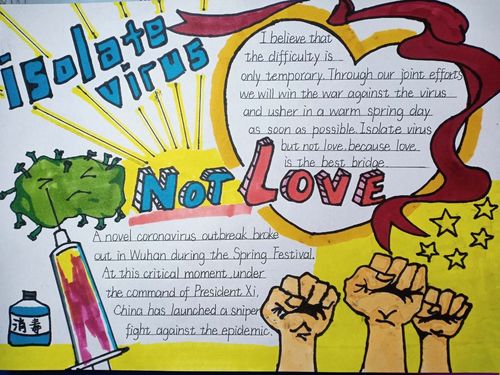 isolate
virus
I believe that
the difficulty is
only temporary. Through our joint efforts
we will win the war against the virus
and usher in a warm spring day
as soon as possible. Isolate virus
but not love. because love
is the best bridge.
NOT LOVE
A novel coronavirus outbreak broke
out in Wuhan during the Spring Festival.
At this critical moment, under
the command of President Xi,
China has launched a sniper
fight against the epidemic.
消毒